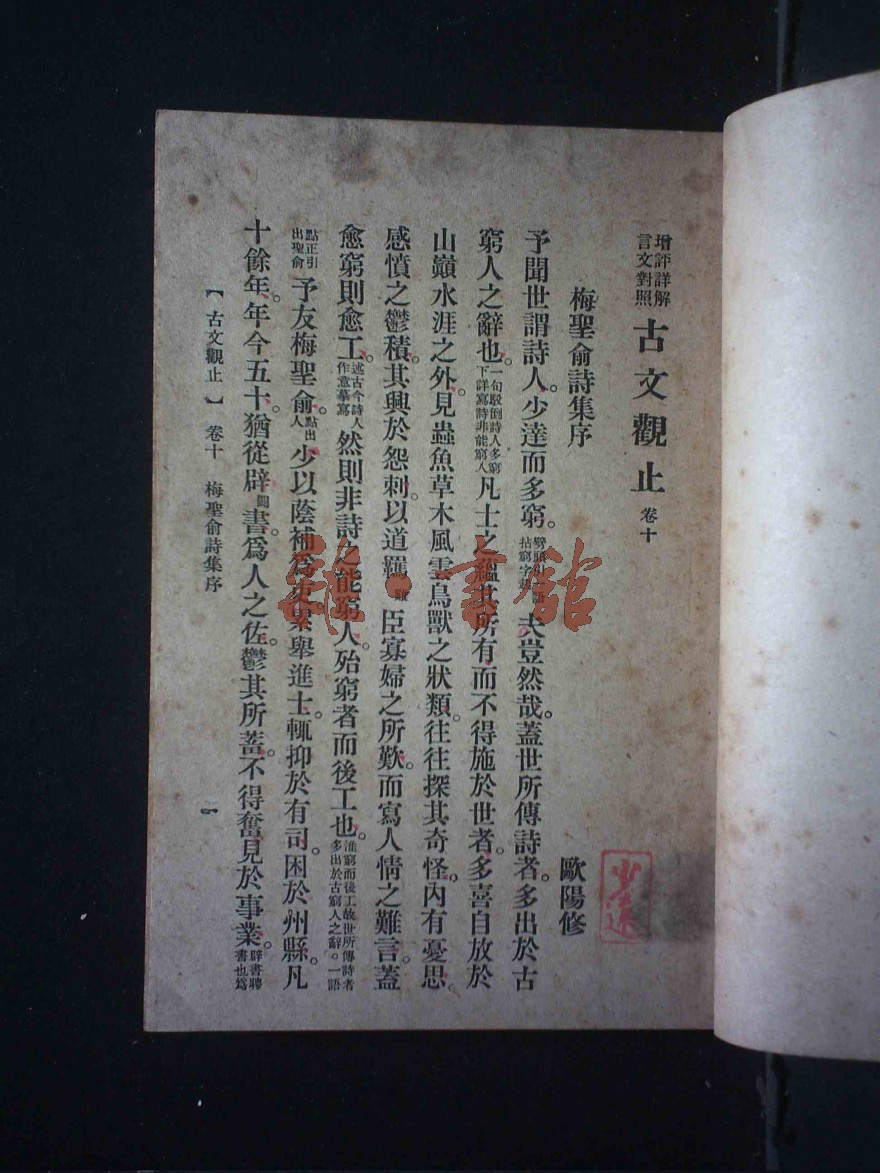 增評詳解
言文對照
古文觀止 卷十
梅聖俞詩集序
歐陽修
予聞世謂詩人。少達而多窮。劈頭引一語拈窮字起夫豈然哉。蓋世所傳詩者。多出於古
窮人之辭也。一句駁倒詩人多窮下詳寫詩非能窮人凡士之蘊其所有而不得施於世者。多喜自放於
山巓水涯之外。見蟲魚草木風雲鳥獸之狀類。往往探其奇怪。內有憂思
感憤之鬱積。其興於怨刺。以道羈臣寡婦之所歎。而寫人情之難言。蓋
愈窮則愈工。述古今詩人作意摹寫然則非詩之能窮人。殆窮者而後工也。惟窮而後工故世所傳詩者多出於古窮人之辭。一語
點正引出聖俞予友梅聖俞。點出人少以蔭補爲吏。累舉進士。輒抑於有司。困於州縣。凡
十餘年。年今五十。猶從辟闢書。爲人之佐。鬱其所蓄。不得奮見於事業。辟書聘書也爲
【古文觀止】 卷十 梅聖俞詩集序 一
雜·書館